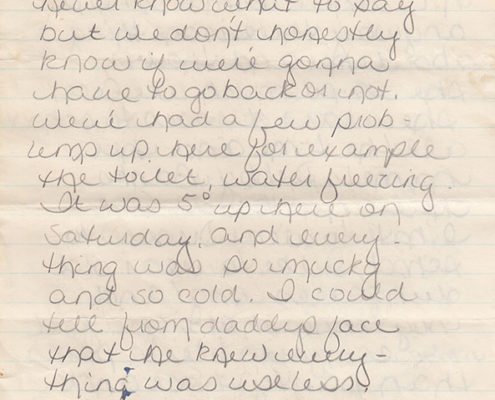 never know what to say
but we don't honestly
know if we're gonna
have to go back or not.
We've had a few prob-
lems up here for example
the toilet, water freezing.
It was 5° up here on
Saturday, and every-
thing was so mucky
and so cold. I could
tell from daddys face
that he knew every-
thing was useless.